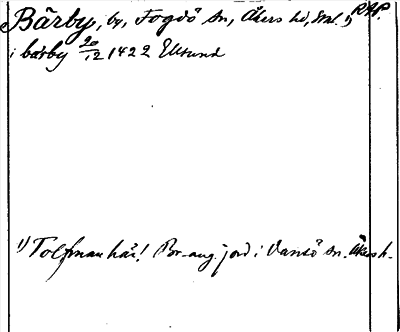 Bärby, by, Fogdö sn, Åkers hd, Sdl. 1) RAP.
i bärby 20/12 1422 Ellsund
1) Tolfman här! Br-ang. jord i Vansö sn. Åkers h.